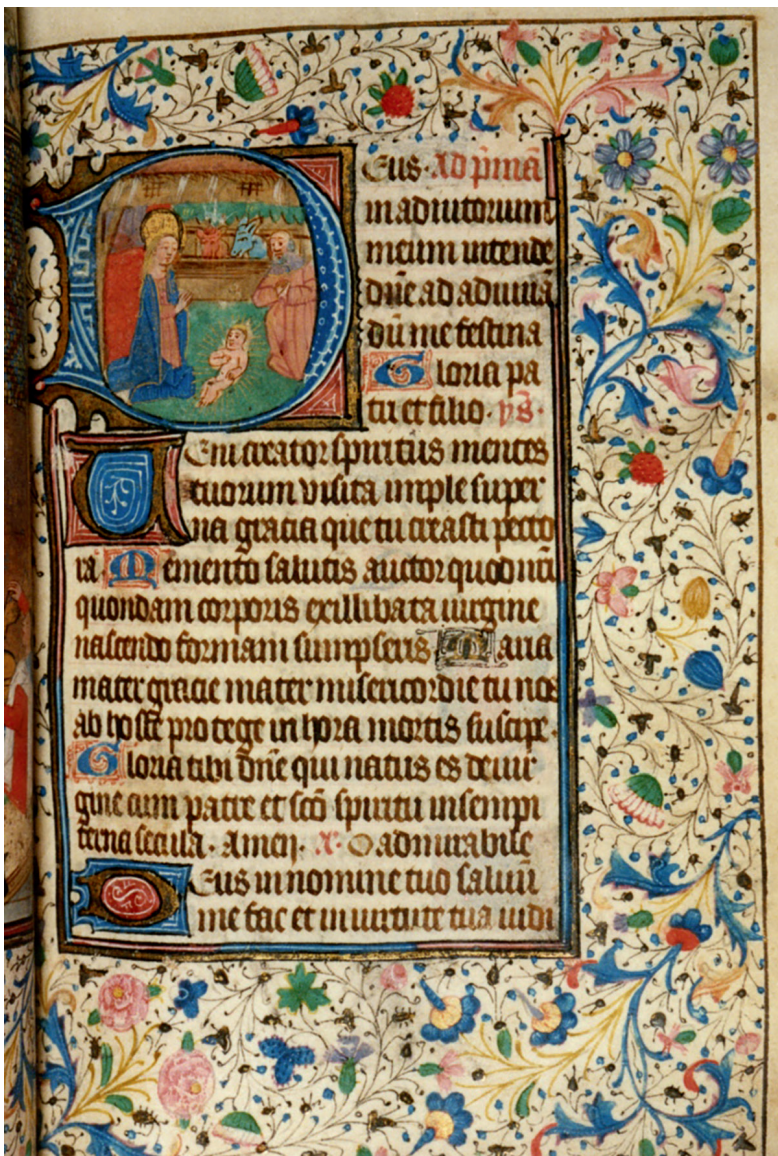 Deus. Ad p̄mā
in adiutorium
meum intende
dn̄e ad adiuuā
dū me festina
Gloria pa
tri et filio. ys̄.
Veni creator spiritus mentes
tuorum visita imple super
na gracia que tu creasti pecto
ra Memento salutis auctor quod nr̄i
quondam corporis ex illibata uirgine
nascendo formam sumpseris Maria
mater gracie mater misericordie tu nos
ab hoste protege in hora mortis suscipe.
Gloria tibi dn̄e qui natus es de uir
gine cum patre et sc̄o spiritu in sempi
terna secula. Amen. O admirabile
Deus in nomine tuo saluū
me fac et in uirtute tua iudi